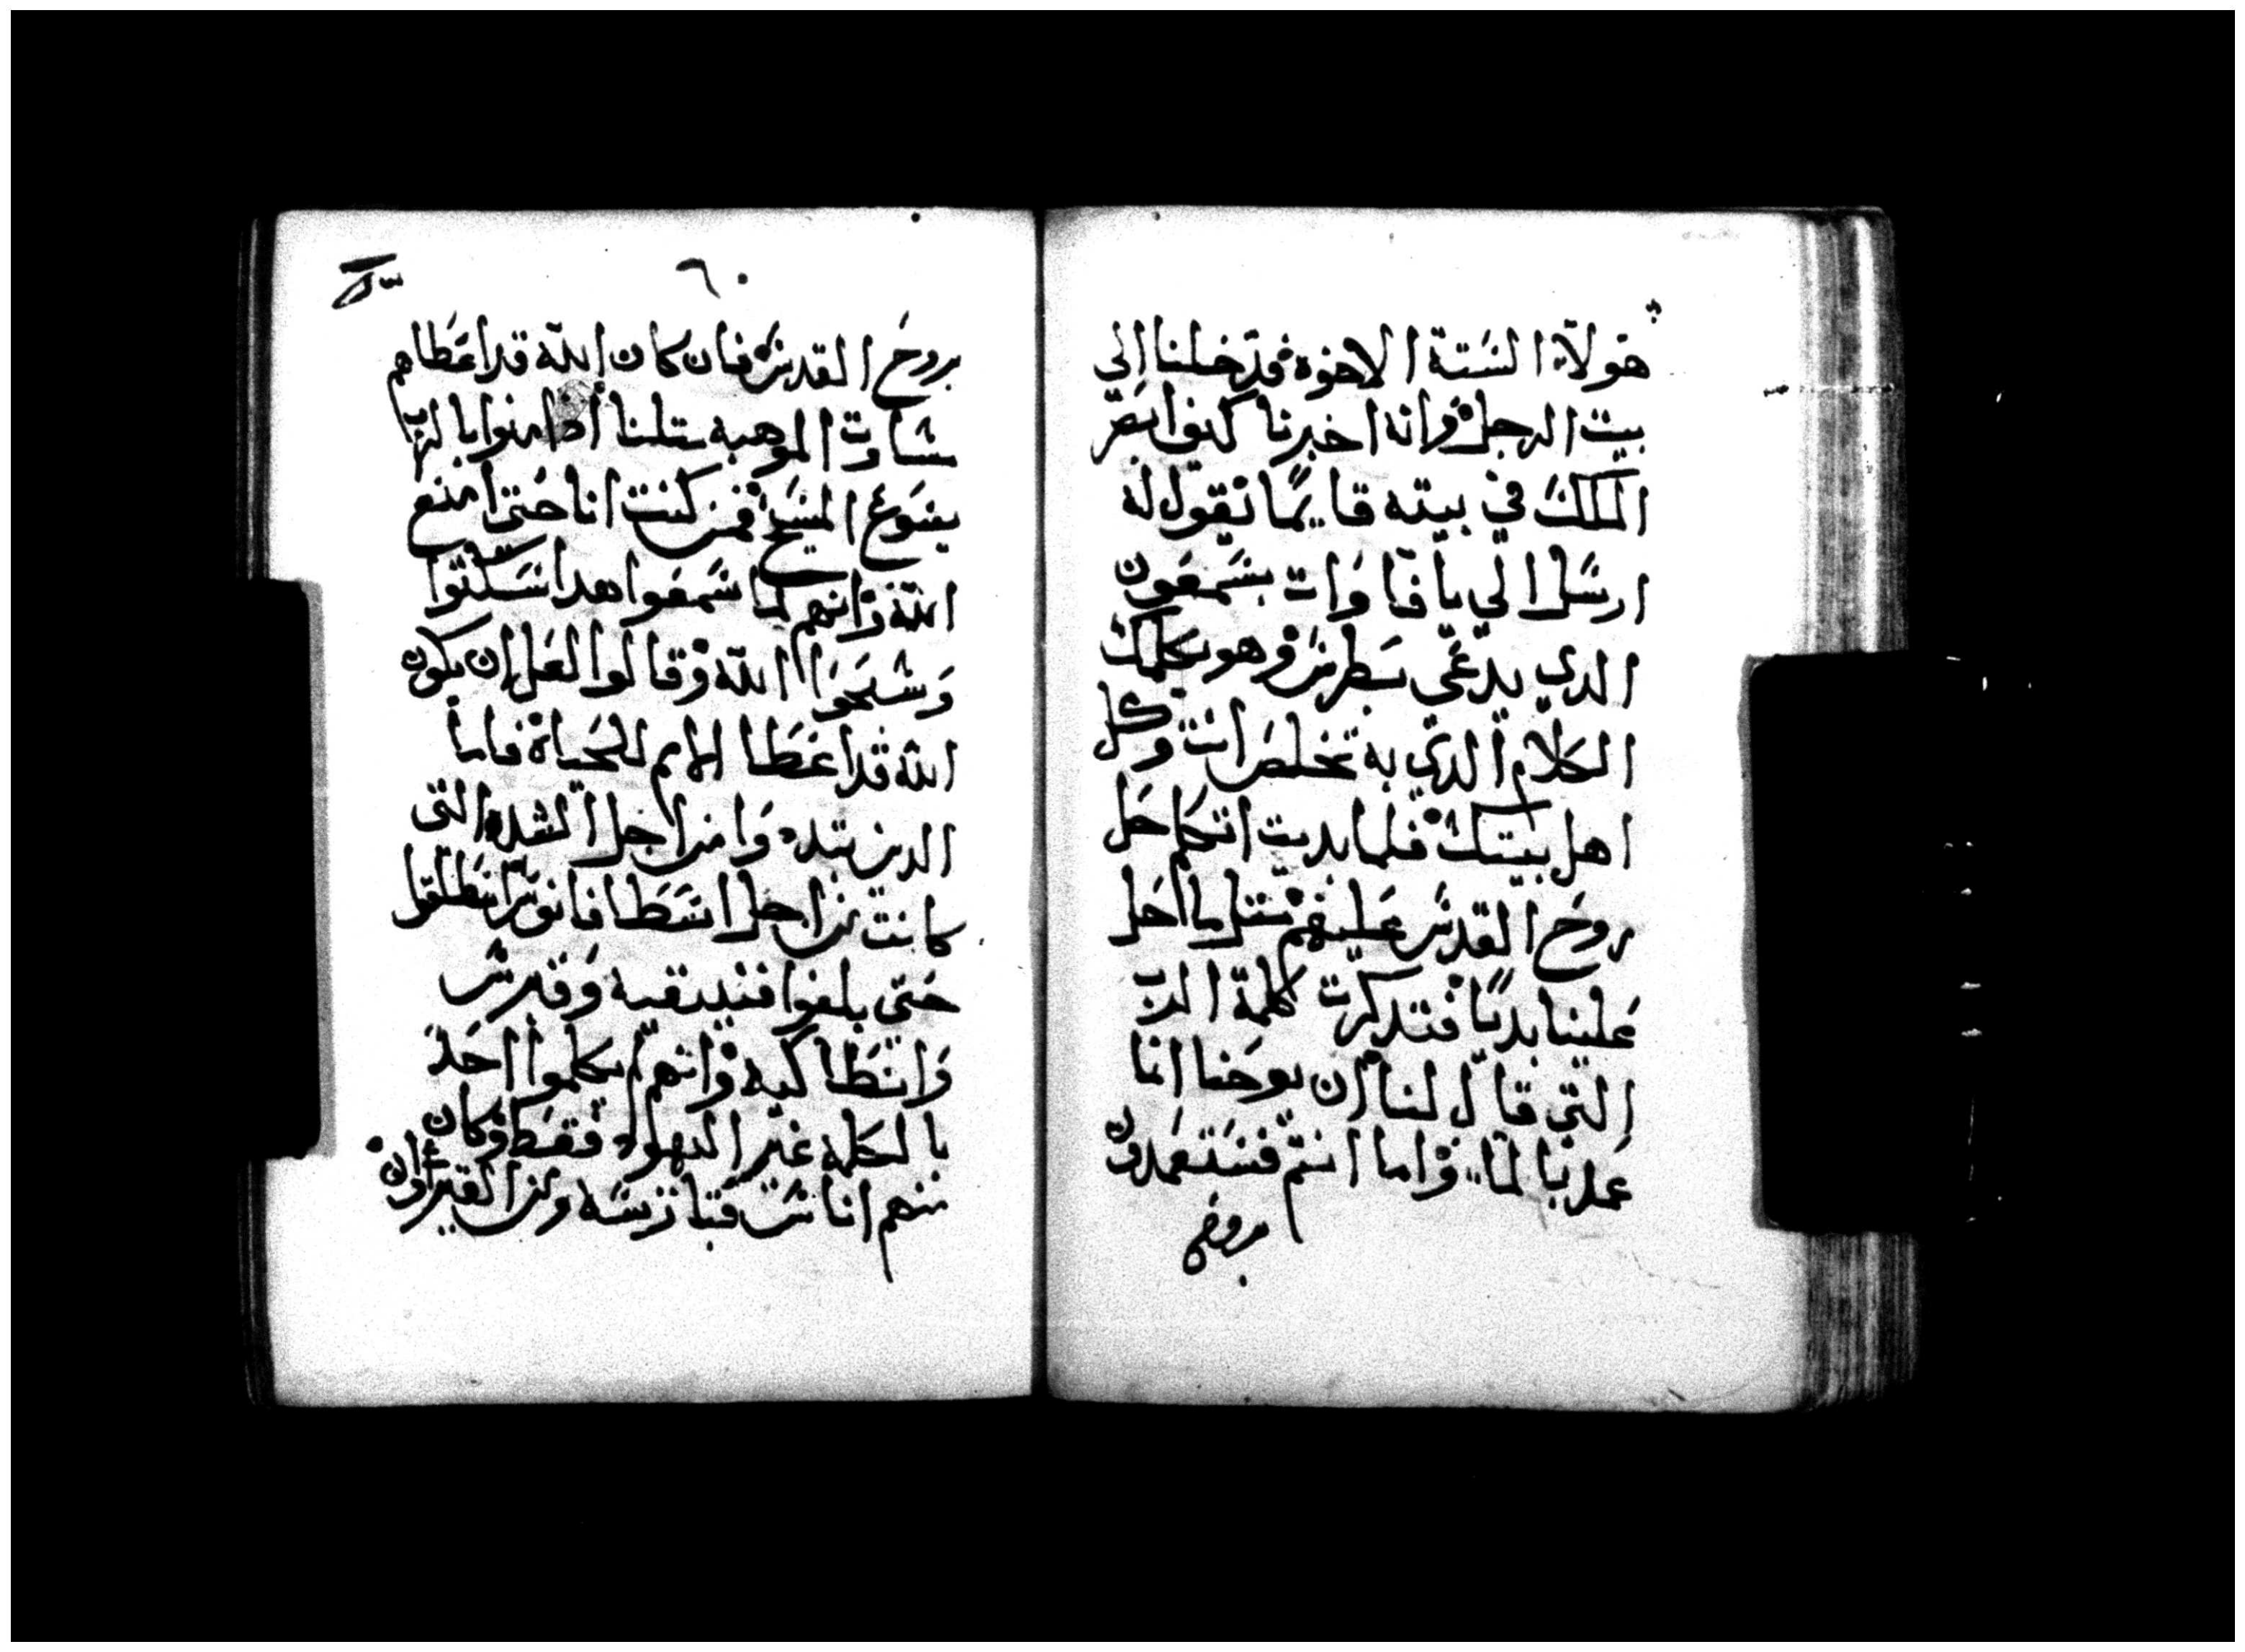 هولاء الستة الاخوه فدخلنا الي
بيت الرجل وانه اخبرنا كيف ابصر
الملاك في بيته قايمًا يقول له
ارسل الي يافا وات بشمعون
الدي يدعي بطرس وهو يكلمك
الكلام الدي به تخلص انت وكل
اهل بيتك فلما بديت اتكلم حل
روح القدس عليهم مثل ما حل
علينا بديًا فتدكرت كلمة الرب
التي قال لنا ان يوحنا انما
عمد بالما واما انتم فستعمدون
بروح
٦٠
بروح القدس فان كان الله قد اعطاهم
مساوت الموهبه متلنا اد امنوا بالرب
يسوع المسيح فمن كنت انا حتي امنع
الله وانهم لما سمعوا هدا سكتوا
وسبحوا الله وقالوا لعل ان يكون
الله قد اعطا الامم للحياة فاما
الدين تبددوا من اجل الشده التي
كانت من اجل اسطافانوس انطلقوا
حتي بلغوا فنيقيه وقبرس
وانطاكيه وانهم لم يكلموا احد
بالكلمه غير اليهود فقط وكان
منهم اناس قبارسه ومن القيروان